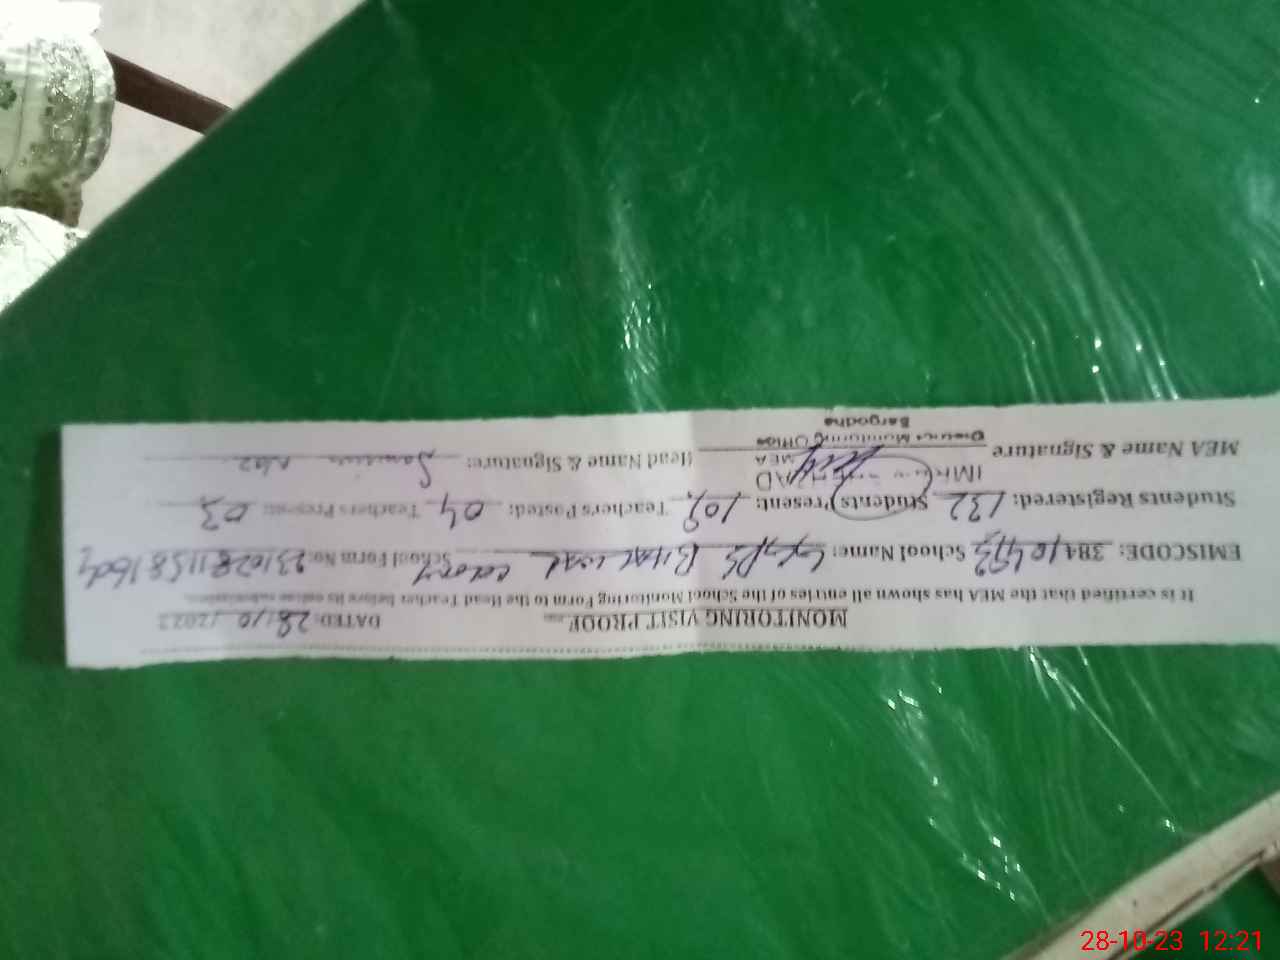 MONITORING VISIT PROOF DATED: 28/10/2023
It is certified that the MEA has shown all entries of the School Monitoring Form to the Head Teacher before its online submission.
EMISCODE: 38410493 School Name: GGPS Bhalwal colony School Form No: 23102811581604
Students Registered: 132 Students Present: 109 Teachers Posted: 04 Teachers Present: 03
MEA Name & Signature IMRAN AD Head Name & Signature:
MEA
District Monitoring Office
Sargodha
28-10-23 12:21